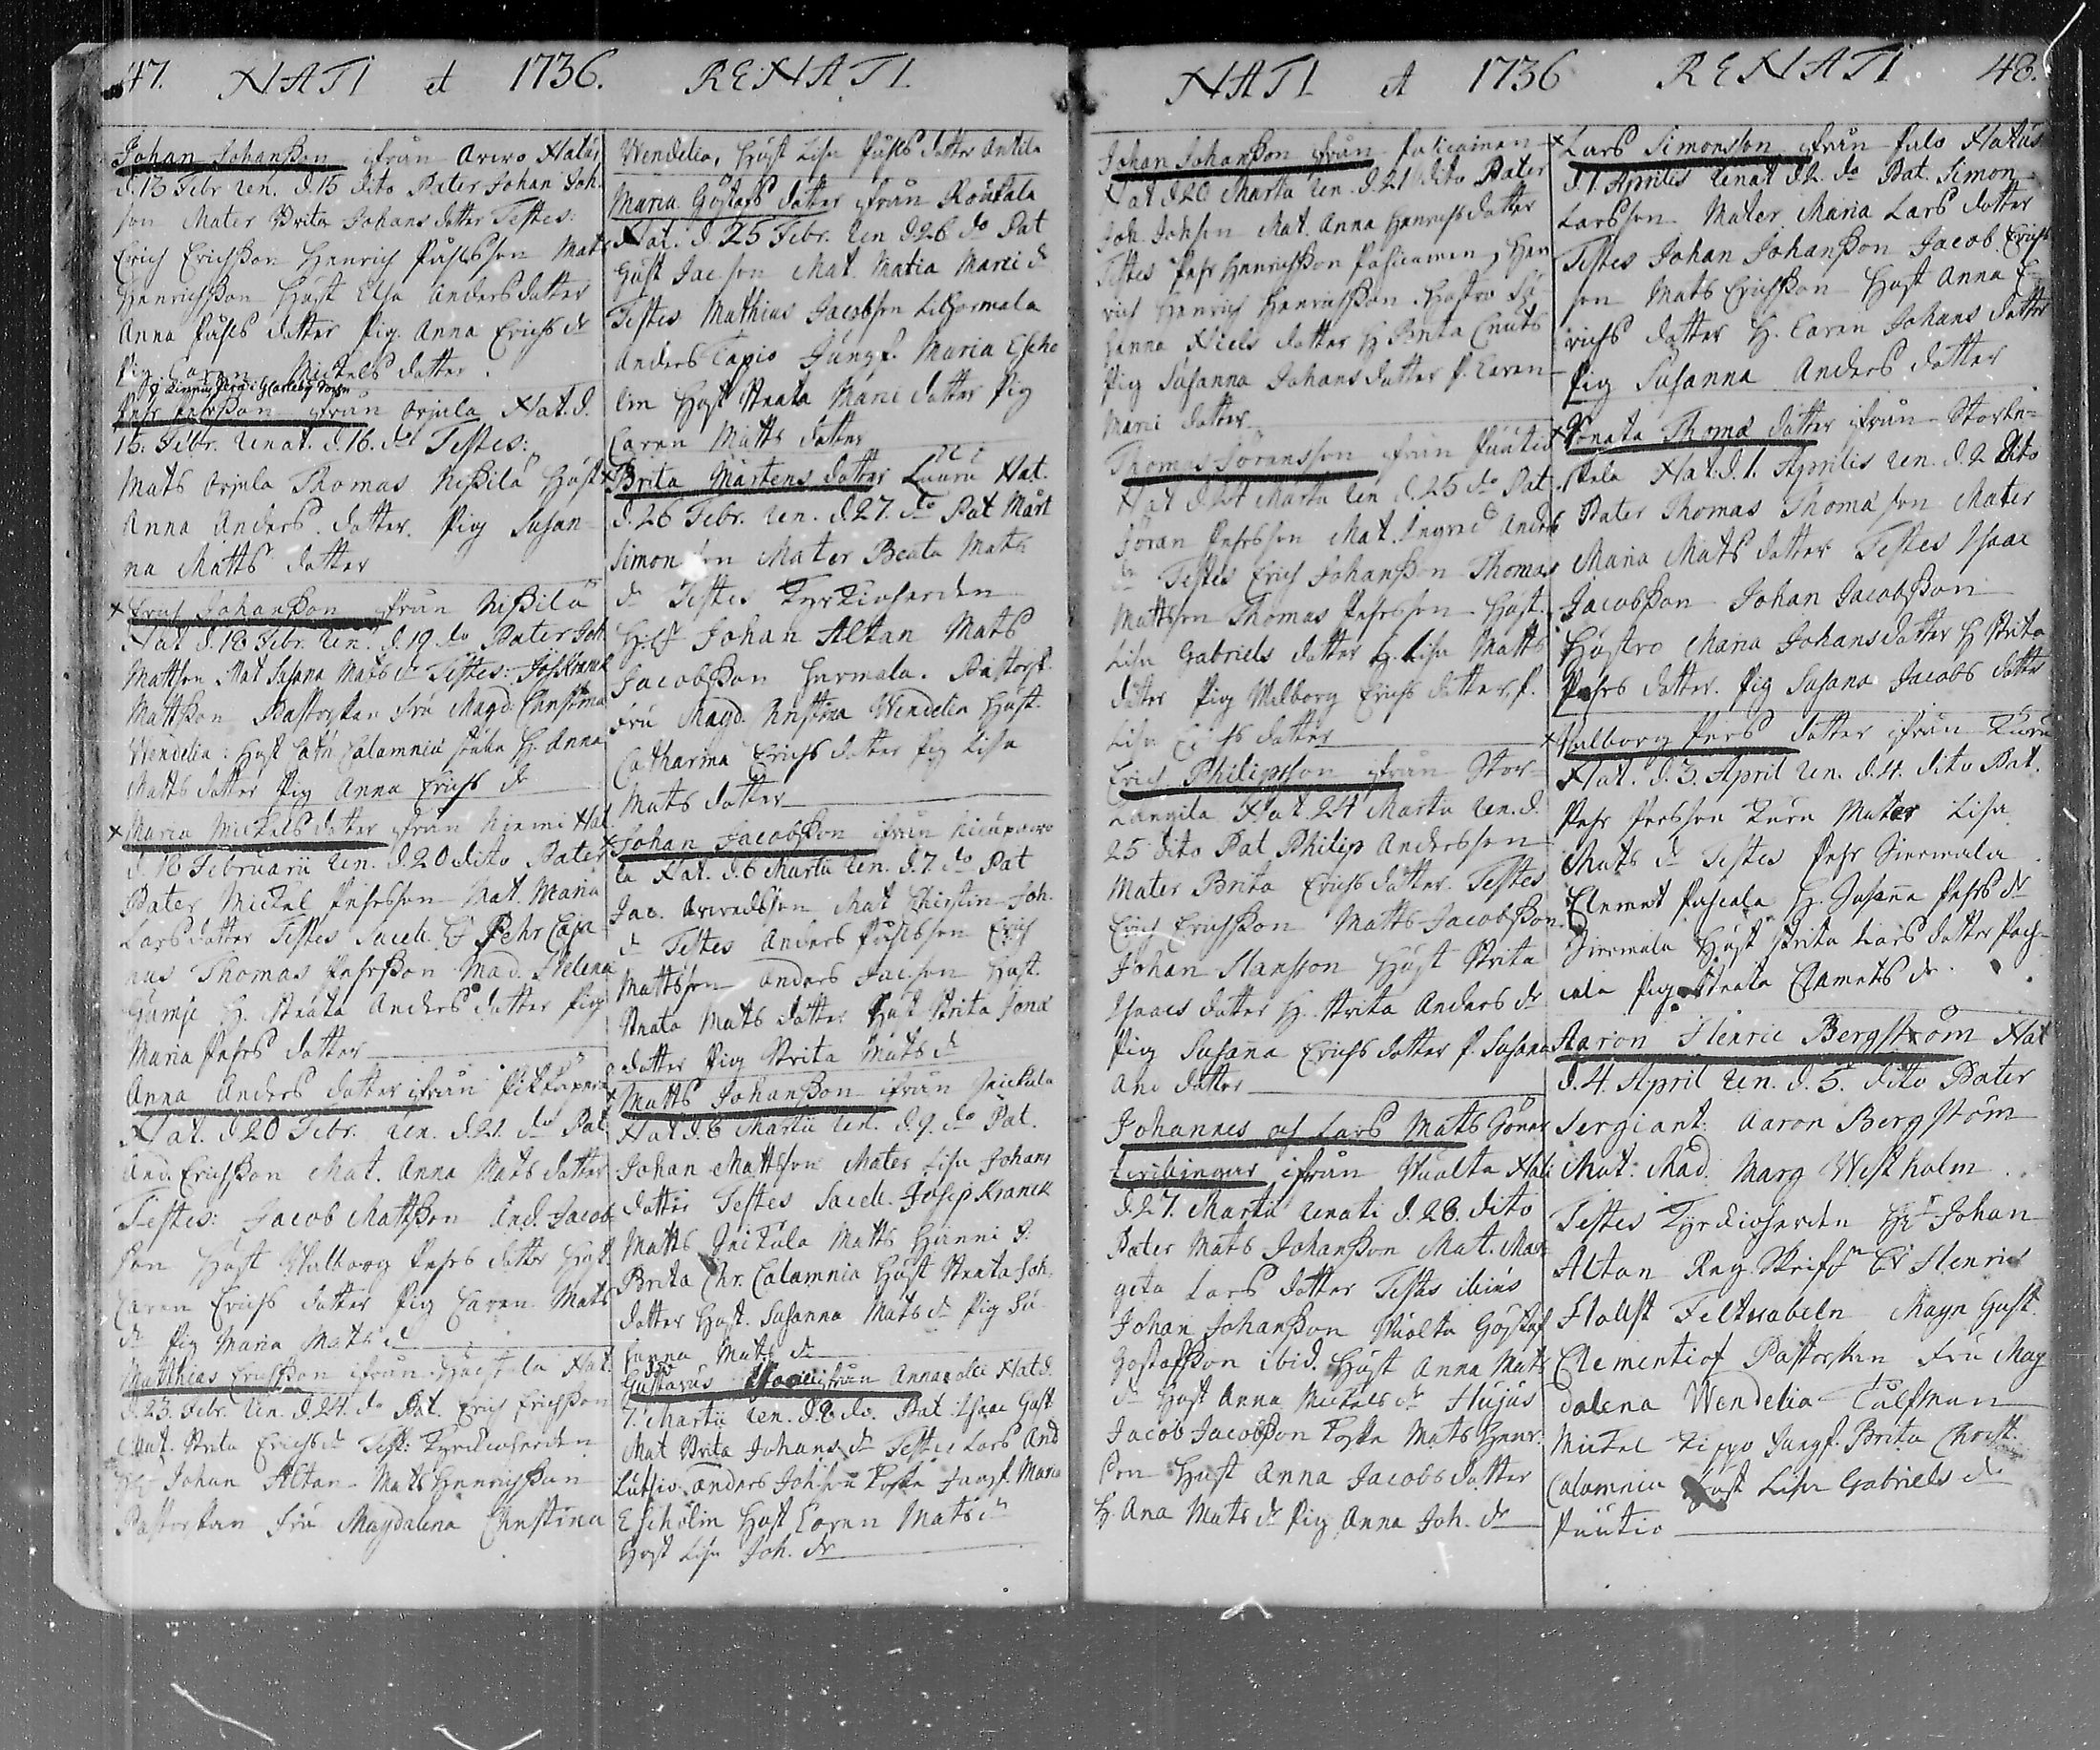 47. NATI et 1736. RENATI
Johan Johanßon ifrån Arwo Natus
d. 13 Febr. Ren. d. 15 dito Pater Johan Joh.
son Mater Brita Johans dotter Testes:
Erich Erichßon Henrich Påhlsson Mats
Henrichßon Hust Elsa Andersdotter
Anna Påhls dotter Pig. Anna Erichs dr
Pig Caren Michels dotter.
Pehr Pehrßon ifrån Orjula Nat. d.
15. Febr. Renat. d. 16. do Testes:
Mats Orjula Thomas Nißilä Hust
Anna Anders dotter. Pig Susan-
na Matts dotter
x Erich Johanßon ifrån Nißilä
Nat d. 18 Febr. Ren. d. 19 do Pater Joh
Mattson Mat Susana Mats dr Testes: Jos Kranck
Mattßon Pastorskan Fru Magd. Christina
Wendelia: Hust Cath Calamnia H. Anna
Matts dotter Pig Anna Erichs dr
x Maria Michels dotter ifrån Niemi Nat
d. 18 Februarii Ren. d. 20 dito Pater
Pater Michel Pehrsson Mat. Maria
Lars dotter Testes Sacell. Pehr Caja-
nus Thomas Pehrßon Mad. Helena
H. Beata Anders dotter Pig
Maria Pehrs dotter
Anna Anders dotter ifrån
Nat. d. 20 Febr. Ren. d. 21. do Pat
And. Erichßon Mat. Anna Mats dotter
Testes: Jacob Mattßon And. Jacob
son Hust Walborg Pehrs dotter Hust
Caren Erichs dotter Pig Caren Mats
dr Pig Maria Mats dr
Matthias Erichßon ifrån Nat.
d. 23. Febr. Ren. d. 24. do Pat. Erich Erichßon
Mat. Brita Erichs dr Test: Kyrkioherden
Hr Johan Altan Mats Henrichßon
Pastorskan Fru Magdalena Christina
Wendelia, Hust Lisa Påhls dotter Anttila
Maria Göstafs dotter ifrån Rousala
Nat. d. 25 Febr. Ren d. 26 do Pat
Gust Jac. son Mat. Maria Marci dr
Testes Mathias Jacobson
Anders Tapio Jungf. Maria Escho
lin Hust Beata Marc dotter Pig
Caren Matts dotter
x Brita Mårtens dotter Lauri Nat.
d. 26 Febr. Ren. d. 27. do Pat Mårt
Simonson Mater Beata Mats
dr Testes Kyrkioherden
Hr Johan Altan Mats
Jacobßon Hermala. Pastorsk.
Fru Magd. Kristina Wendelia Hust.
Catharina Erichs dotter Pig Lisa
Mats dotter
x Johan Jacobßon ifrån
la Nat. d. 6 Martii Ren. d. 7. do Pat
Jac. Mat Christin Joh.
dr Testes Anders Påhlsson Erich
Mattsson Anders Jacson Hust.
Beata Mats dotter Hust Brita Jona
dotter Pig Brita Mats dr
x Matts Johanßon ifrån Jnikula
Nat d. 8 Martii Ren. d. 9. do Pat.
Johan Mattsson Mater Lisa Johans
dotter Testes Sacell. Josep Kranck
Matts Jnikula Matts Hanni J:
Brita Chr. Calamnia Hust Beata Joh.
dotter Hust. Susanna Mats dr Pig Su-
sanna Mats dr
Gustavus ifrån Annala Nat d.
7. Martii Ren. d. 8 do. Pat Isaac Gust
Mat Brita Johans dr Testes Lars And
Anders Johson Jungf. Maria
Escholin Hust Caren Mats dr
Hust Lisa Joh. dr
NATI et 1736 RENATI 48.
Johan Johanßon ifrån Pasicainen
Nat d. 20 Martii Ren. d. 21 dito Pater
Joh. Johson Mat. Anna Henrichs dotter
Testes Pehr Henrichßon Pasicainen, Hen
rich Henrich Henrichßon. Hustro Su-
sanna Niels dotter H Brita Cnuts
Pig Susanna Johans dotter P. Caren
Marci dotter
Thomas Joransson ifrån Puutio
Nat d. 24 Martii Ren d. 25 do Pat
Joran Pehrsson Mat. Ingred Anders
dr Testes Erich Johanßon Thomas
Mattsson Thomas Pehrsson Hust.
Lisa Gabriels dotter H. Lisa Matts
dotter Pig Walborg Erichs dotter P.
Lisa Erichs dotter
Erich Philipsson ifrån Stor-
Langila Nat. 24 Martii Ren. d.
25 dito Pat Philip Andersson
Mater Brita Erichs dotter. Testes
Erich Erichßon Matts Jacobßon
Johan Hansson Hust Brita
Isaacs dotter H. Brita Anders dr
Pig Susanna Erichs dotter P. Susana
And dotter
Johannes och Lars Mats Söner
twillingar ifrån Wuolta Nati
d. 27. Martii Renati d. 28. dito
Pater Mats Johanßon Mat. Mar-
geta Lars dotter Testes
Johan Johanßon Wuolta Göstaf
Gostafsson ibid. Hust Anna Mats
dr Hust Anna Michels dr Hujus
Jacob Jacobßon Mats Henr.
son Hust Anna Jacobs dotter
H. Ana Mats dr Pig Anna Joh. dr
x Lars Simonsson ifrån Palo Natus
d. 1. Aprilis Renat d. 2. do Pat. Simon
Larsson. Mater Maria Lars dotter
Testes Johan Johanßon Jacob Erichs
son Mats Erichßon Hust Anna E-
richs dotter H. Caren Johans dotter
Pig Susanna Anders dotter
x Renata Thomæ dotter ifrån
Nat. d. 1. Aprilis Ren. d. 2 dito
Pater Thomas Thomæson Mater
Maria Mats dotter Testes Isaac
Jacobßon Johan Jacobßon
Hustro Maria Johans dotter H Brita
Pehrs dotter. Pig Susana Jacobs dotter
x Walborg Pers dotter ifrån Kuru
Nat. d. 3. April Ren. d. 4. dito Pat.
Pehr Persson Kuru Mater Lisa
Mats dr Testes Pehr Siermala
Clemet Pascala H. Susana Pehrs dr
Siermala Hust Brita Lars dotter Pas-
cala Pig Beata Clemets dr.
Aaron Henric Bergström Nat
d. 4. April Ren. d. 5. dito Pater
Sergiant: Aaron Bergstöm
Mat: Mad. Marg Westholm
Testes Kyrckioherden Hr Johan
Altan Reg. Skrifr Henric
Felt Magn Gust.
Clementiof Pastorskan Fru Mag
dalena Wendelia
Michel Tippo Jungf. Brita Christ.
Calamnia Hust Lisa Gabriels dr
Puutio